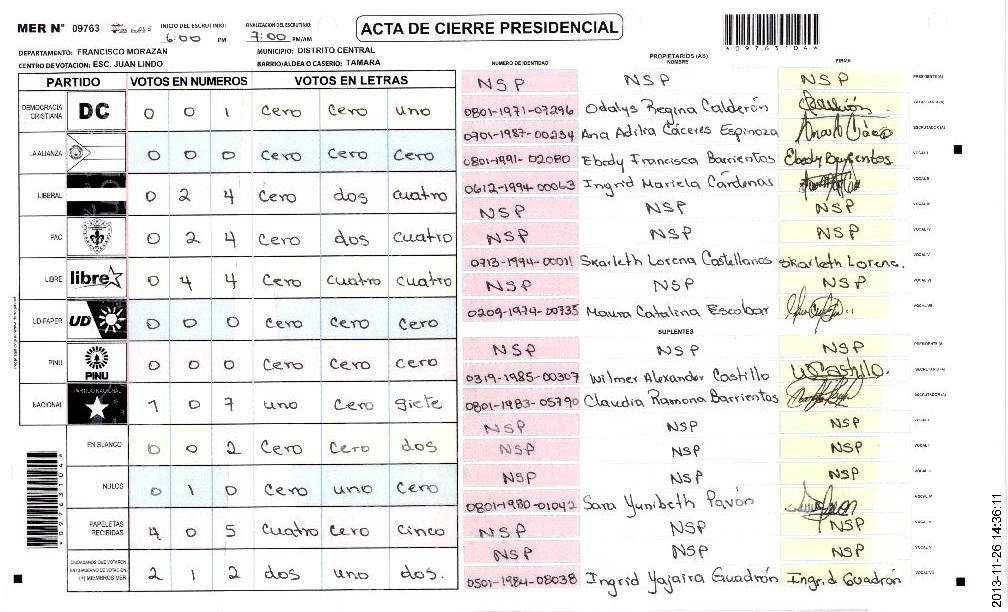 MER N° 09763 INICIO DEL ESCRUTINIO: 6:00 PM FINALIZACION DEL ESCRUTINIO: 7:00 PM/AM ACTA DE CIERRE PRESIDENCIAL
DEPARTAMENTO: FRANCISCO MORAZAN MUNICIPIO: DISTRITO CENTRAL
CENTRO DE VOTACION: ESC. JUAN LINDO BARRIO/ALDEA O CASERIO: TAMARA
PARTIDO VOTOS EN NUMEROS VOTOS EN LETRAS
DEMOCRACIA CRISTIANA DC 0 0 1 cero cero uno
LA ALIANZA 0 0 0 cero cero cero
LIBERAL 0 2 4 cero dos cuatro
PAC 0 2 4 cero dos cuatro
LIBRE libre 0 4 4 cero cuatro cuatro
UD-FAPER UD 0 0 0 cero cero cero
PINU PINU 0 0 0 cero cero cero
NACIONAL PARTIDO NACIONAL 1 0 7 uno cero siete
EN BLANCO 0 0 2 cero cero dos
NULOS 0 1 0 cero uno cero
PAPELETAS RECIBIDAS 4 0 5 cuatro cero cinco
CIUDADANOS QUE VOTARON EN CUADERNO DE VOTACION (+) MIEMBROS MER 2 1 2 dos uno dos.
09763104
NUMERO DE IDENTIDAD PROPIETARIOS (AS) NOMBRE FIRMA
NSP NSP NSP PRESIDENTE (A)
0801-1971-07296 Odalys Regina Calderón SECRETARIO (A)
0701-1987-00234 Ana Adilia Cáceres Espinoza ESCRUTADOR (A)
0801-1991-02080 Ebody Francisca Barrientos Ebody Barrientos VOCAL I
0612-1994-00063 Ingrid Mariela Cárdenas VOCAL II
NSP NSP NSP VOCAL III
NSP NSP NSP VOCAL IV
0713-1994-00011 Skarleth Lorena Castellanos Skarleth Lorena. VOCAL V
NSP NSP NSP VOCAL VI
0209-1974-00735 Maura Catalina Escobar VOCAL VII
SUPLENTES
NSP NSP NSP PRESIDENTE (A)
0319-1985-00307 Wilmer Alexander Castillo W Castillo. SECRETARIO (A)
0801-1983-05790 Claudia Ramona Barrientos ESCRUTADOR (A)
NSP NSP NSP VOCAL I
NSP NSP NSP VOCAL II
NSP NSP NSP VOCAL III
0801-1980-01042 Sara Yunibeth Pavón VOCAL IV
NSP NSP NSP VOCAL V
NSP NSP NSP VOCAL VI
0501-1984-08038 Ingrid Yajaira Guadrón Ingrid Guadrón VOCAL VII
09763104
2013-11-26 14:36:11